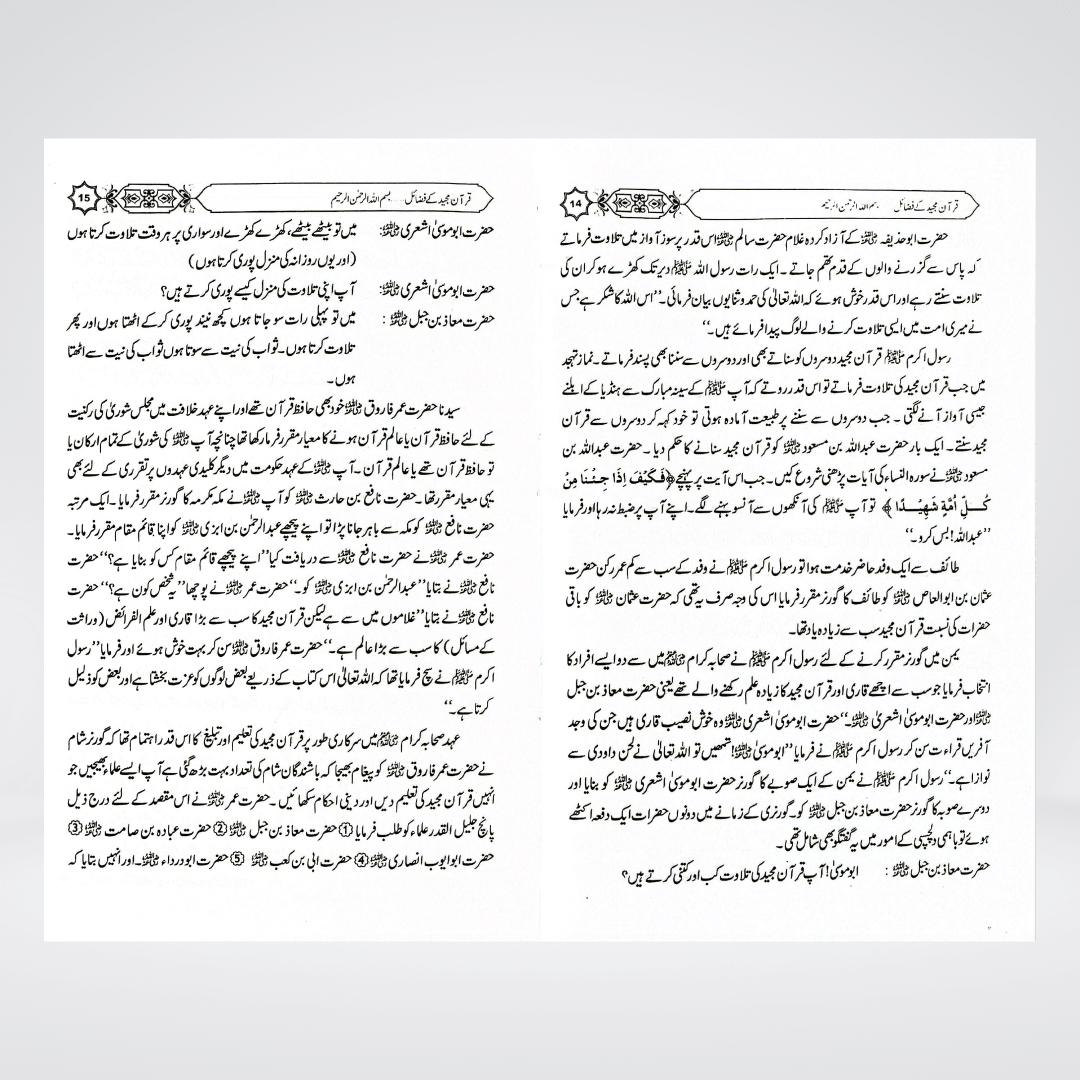 قرآن مجید کے فضائل ..... بسم اللہ الرحمٰن الرحیم
14
حضرت ابوحذیفہ رضی اللہ عنہ کے آزاد کردہ غلام حضرت سالم رضی اللہ عنہ اس قدر پرسوز آواز میں تلاوت فرماتے
کہ پاس سے گزرنے والوں کے قدم تھم جاتے۔ ایک رات رسول اللہ ﷺ دیر تک کھڑے ہو کر ان کی
تلاوت سنتے رہے اور اس قدر خوش ہوئے کہ اللہ تعالیٰ کی حمد و ثنا یوں بیان فرمائی۔ ”اس اللہ کا شکر ہے جس
نے میری امت میں ایسی تلاوت کرنے والے لوگ پیدا فرمائے ہیں۔“
رسول اکرم ﷺ قرآن مجید دوسروں کو سناتے بھی اور دوسروں سے سننا بھی پسند فرماتے۔ نماز تہجد
میں جب قرآن مجید کی تلاوت فرماتے تو اس قدر روتے کہ آپ ﷺ کے سینہ مبارک سے ہنڈیا کے ابلنے
جیسی آواز آنے لگتی۔ جب دوسروں سے سننے پر طبیعت آمادہ ہوتی تو خود کہہ کر دوسروں سے قرآن
مجید سنتے۔ ایک بار حضرت عبداللہ بن مسعود رضی اللہ عنہ کو قرآن مجید سنانے کا حکم دیا۔ حضرت عبداللہ بن
مسعود رضی اللہ عنہ نے سورہ النساء کی آیات پڑھنی شروع کیں۔ جب اس آیت پر پہنچے ﴿فَكَيْفَ اِذَا جِئْنَا مِنْ
كُـلِّ اُمَّةٍ شَهِيْـدًا﴾ تو آپ ﷺ کی آنکھوں سے آنسو بہنے لگے۔ اپنے آپ پر ضبط نہ رہا اور فرمایا
”عبداللہ! بس کرو۔“
طائف سے ایک وفد حاضر خدمت ہوا تو رسول اکرم ﷺ نے وفد کے سب سے کم عمر رکن حضرت
عثمان بن ابوالعاص رضی اللہ عنہ کو طائف کا گورنر مقرر فرمایا اس کی وجہ صرف یہ تھی کہ حضرت عثمان رضی اللہ عنہ کو باقی
حضرات کی نسبت قرآن مجید سب سے زیادہ یاد تھا۔
یمن میں گورنر مقرر کرنے کے لئے رسول اکرم ﷺ نے صحابہ کرام رضی اللہ عنہم میں سے دو ایسے افراد کا
انتخاب فرمایا جو سب سے اچھے قاری اور قرآن مجید کا زیادہ علم رکھنے والے تھے یعنی حضرت معاذ بن جبل
رضی اللہ عنہ اور حضرت ابوموسیٰ اشعری رضی اللہ عنہ۔“ حضرت ابوموسیٰ اشعری رضی اللہ عنہ وہ خوش نصیب قاری ہیں جن کی وجد
آفریں قراءت سن کر رسول اکرم ﷺ نے فرمایا ”ابوموسیٰ رضی اللہ عنہ! تمھیں تو اللہ تعالیٰ نے لحن داؤدی سے
نوازا ہے۔“ رسول اکرم ﷺ نے یمن کے ایک صوبے کا گورنر حضرت ابوموسیٰ اشعری رضی اللہ عنہ کو بنایا اور
دوسرے صوبہ کا گورنر حضرت معاذ بن جبل رضی اللہ عنہ کو۔ گورنری کے زمانے میں دونوں حضرات ایک دفعہ اکٹھے
ہوئے تو باہمی دلچسپی کے امور میں یہ گفتگو بھی شامل تھی۔
حضرت معاذ بن جبل رضی اللہ عنہ : ابوموسیٰ! آپ قرآن مجید کی تلاوت کب اور کتنی کرتے ہیں؟
قرآن مجید کے فضائل ..... بسم اللہ الرحمٰن الرحیم
15
حضرت ابوموسیٰ اشعری رضی اللہ عنہ: میں تو بیٹھے بیٹھے، کھڑے کھڑے اور سواری پر ہر وقت تلاوت کرتا ہوں
(اور یوں روزانہ کی منزل پوری کرتا ہوں)
حضرت ابوموسیٰ اشعری رضی اللہ عنہ: آپ اپنی تلاوت کی منزل کیسے پوری کرتے ہیں؟
حضرت معاذ بن جبل رضی اللہ عنہ : میں تو پہلی رات سو جاتا ہوں کچھ نیند پوری کر کے اٹھتا ہوں اور پھر
تلاوت کرتا ہوں۔ ثواب کی نیت سے سوتا ہوں ثواب کی نیت سے اٹھتا
ہوں۔
سیدنا حضرت عمر فاروق رضی اللہ عنہ خود بھی حافظ قرآن تھے اور اپنے عہد خلافت میں مجلس شوریٰ کی رکنیت
کے لئے حافظ قرآن یا عالم قرآن ہونے کا معیار مقرر فرما رکھا تھا چنانچہ آپ رضی اللہ عنہ کی شوریٰ کے تمام ارکان یا
تو حافظ قرآن تھے یا عالم قرآن۔ آپ رضی اللہ عنہ کے عہد حکومت میں دیگر کلیدی عہدوں پر تقرری کے لئے بھی
یہی معیار مقرر تھا۔ حضرت نافع بن حارث رضی اللہ عنہ کو آپ رضی اللہ عنہ نے مکہ مکرمہ کا گورنر مقرر فرمایا۔ ایک مرتبہ
حضرت نافع رضی اللہ عنہ کو مکہ سے باہر جانا پڑا تو اپنے پیچھے عبدالرحمٰن بن ابزی رضی اللہ عنہ کو اپنا قائم مقام مقرر فرمایا۔
حضرت عمر رضی اللہ عنہ نے حضرت نافع رضی اللہ عنہ سے دریافت کیا ”اپنے پیچھے قائم مقام کس کو بنایا ہے؟“ حضرت
نافع رضی اللہ عنہ نے بتایا ”عبدالرحمٰن بن ابزی رضی اللہ عنہ کو۔“ حضرت عمر رضی اللہ عنہ نے پوچھا ”یہ شخص کون ہے؟“ حضرت
نافع رضی اللہ عنہ نے بتایا ”غلاموں میں سے ہے لیکن قرآن مجید کا سب سے بڑا قاری اور علم الفرائض (وراثت
کے مسائل) کا سب سے بڑا عالم ہے۔“ حضرت عمر فاروق رضی اللہ عنہ سن کر بہت خوش ہوئے اور فرمایا ”رسول
اکرم ﷺ نے سچ فرمایا تھا کہ اللہ تعالیٰ اس کتاب کے ذریعے بعض لوگوں کو عزت بخشتا ہے اور بعض کو ذلیل
کرتا ہے۔“
عہد صحابہ کرام رضی اللہ عنہم میں سرکاری طور پر قرآن مجید کی تعلیم اور تبلیغ کا اس قدر اہتمام تھا کہ گورنر شام
نے حضرت عمر فاروق رضی اللہ عنہ کو پیغام بھیجا کہ باشندگان شام کی تعداد بہت بڑھ گئی ہے آپ ایسے علماء بھیجیں جو
انہیں قرآن مجید کی تعلیم دیں اور دینی احکام سکھائیں۔ حضرت عمر رضی اللہ عنہ نے اس مقصد کے لئے درج ذیل
پانچ جلیل القدر علماء کو طلب فرمایا ① حضرت معاذ بن جبل رضی اللہ عنہ ② حضرت عبادہ بن صامت رضی اللہ عنہ ③
حضرت ابوایوب انصاری رضی اللہ عنہ ④ حضرت ابی بن کعب رضی اللہ عنہ ⑤ حضرت ابودرداء رضی اللہ عنہ۔ اور انہیں بتایا کہ